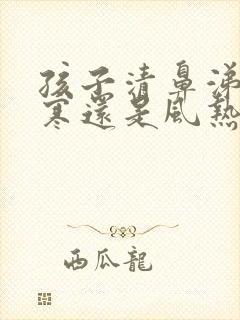 孩子清鼻涕
寒還是風熱
西瓜龍